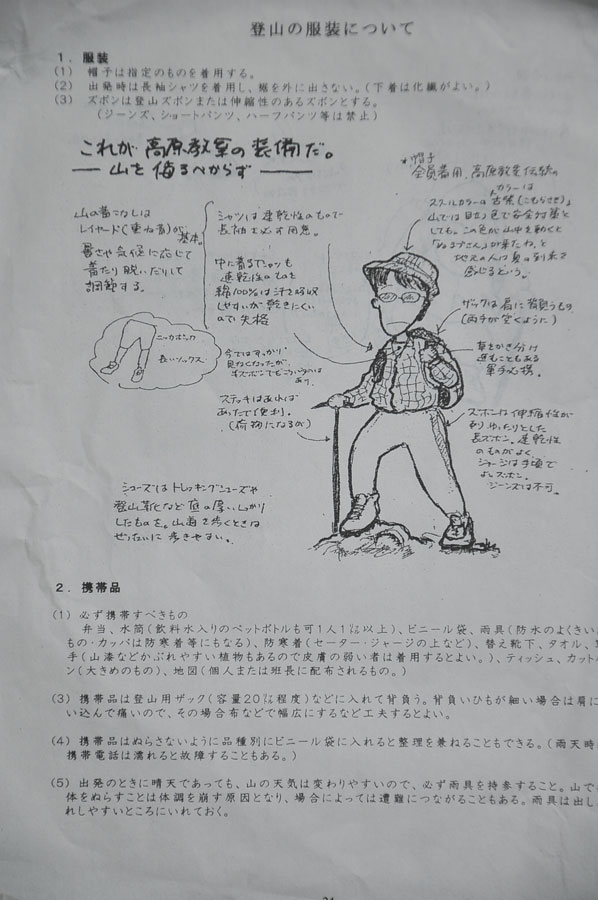 登山の服装について
1. 服装
(1) 帽子は指定のものを着用する。
(2) 出発時は長袖シャツを着用し、裾を外に出さない。(下着は化繊がよい。)
(3) ズボンは登山ズボンまたは伸縮性のあるズボンとする。
(ジーンズ、ショートパンツ、ハーフパンツ等は禁止)
これが高原教室の装備だ。
山を侮るべからず
山の着こなしは
レイヤード(重ね着)が基本。
暑さや気候に応じて
着たり脱いだりして
調節する。
シャツは速乾性のもので
長袖を必ず用意。
中に着るTシャツも
速乾性のものを
綿100%は汗を吸収
しやすいが乾きにくい
ので失格
帽子
全員着用、高原教室伝統の
カラーは
スクールカラーは古紫(こむらさき)
山では目立つ色で安全対策と
しても。この色が山中を動くと
地元の人は夏の到来を
感じるという。
ザックは肩に背負うもの
(両手が空くように)
草をかき分け
進むこともある
軍手必携。
ニッカボッカ
長いソックス
今ではすっかり
見なくなったが、
ステッキはあれば
あったで便利。
(荷物になるが)
ズボンは伸縮性が
ありゆったりとした
長ズボン。速乾性
のものがよく
ジャージは手頃で
よいズボン。
ジーンズは不可。
シューズはトレッキングシューズや
登山靴など底の厚いしっかり
したものを。山道を歩くときは
ぜったいに歩きやすい。
2. 携帯品
(1) 必ず携帯すべきもの
弁当、水筒(飲料水入りのペットボトルも可1人1㍑以上)、ビニール袋、雨具(防水のよくきい
もの・カッパは防寒着等にもなる)、防寒着(セーター・ジャージの上など)、替え靴下、タオル、
手(山漆などかぶれやすい植物もあるので皮膚の弱い者は着用するとよい。)、ティッシュ、カット
ン(大きめのもの)、地図(個人または班長に配布されるもの。)
(3) 携帯品は登山用ザック(容量20㍑程度)などに入れて背負う。背負いひもが細い場合は肩に
い込んで痛いので、その場合布などで幅広にするなど工夫するとよい。
(4) 携帯品はぬらさないように品種別にビニール袋に入れると整理を兼ねることもできる。(雨天時
携帯電話は濡れると故障することもある。)
(5) 出発のときに晴天であっても、山の天気は変わりやすいので、必ず雨具を持参すること。山で
体をぬらすことは体調を崩す原因となり、場合によっては遭難につながることもある。雨具は出し
れしやすいところにいれておく。